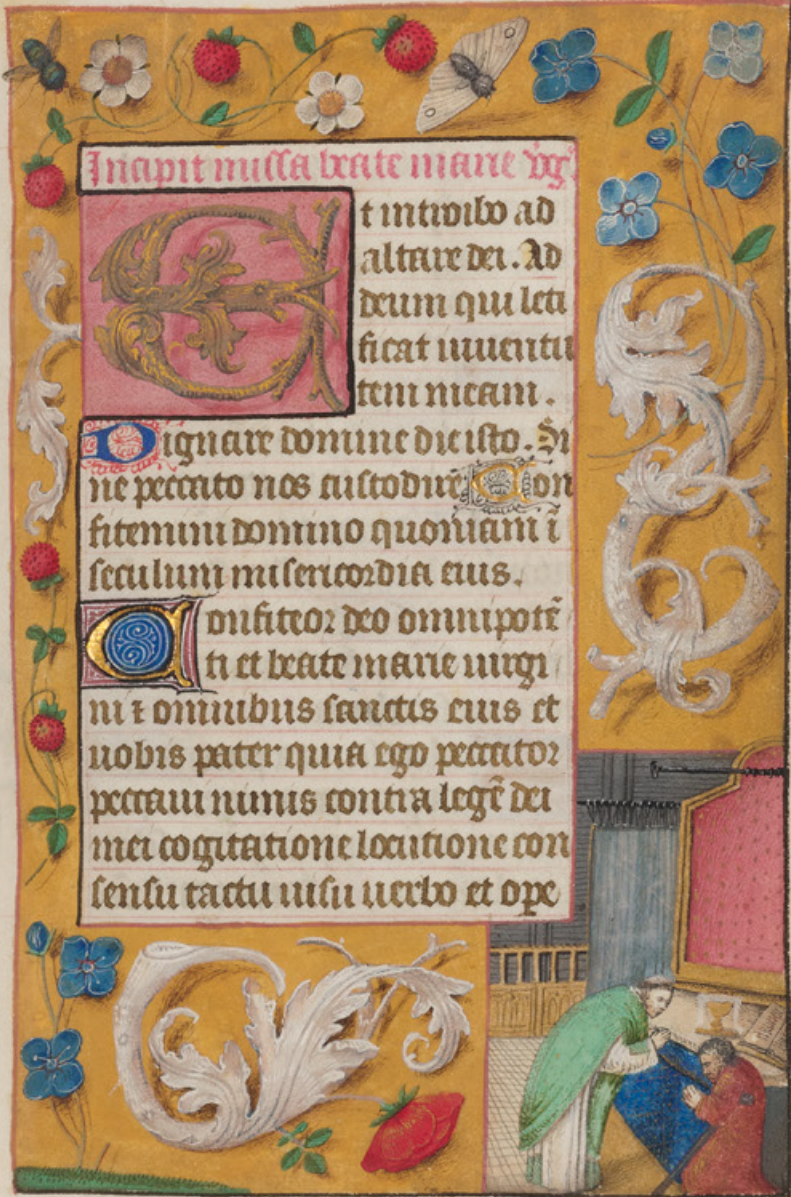 Incipit missa beate marie v̄g̅
Et introibo ad
altare dei. Ad
deum qui leti
ficat iuuentu
tem meam.
Dignare domine die isto. Si
ne peccato nos custodire Con
fitemini domino quoniam ī
seculum misericordia eius.
Confiteor deo omnipotē
ti et beate marie uirgi
ni ⁊ omnibus sanctis eius et
uobis pater quia ego peccator
peccaui nimis contra legē dei
mei cogitatione locutione con
sensu tactu uisu uerbo et ope